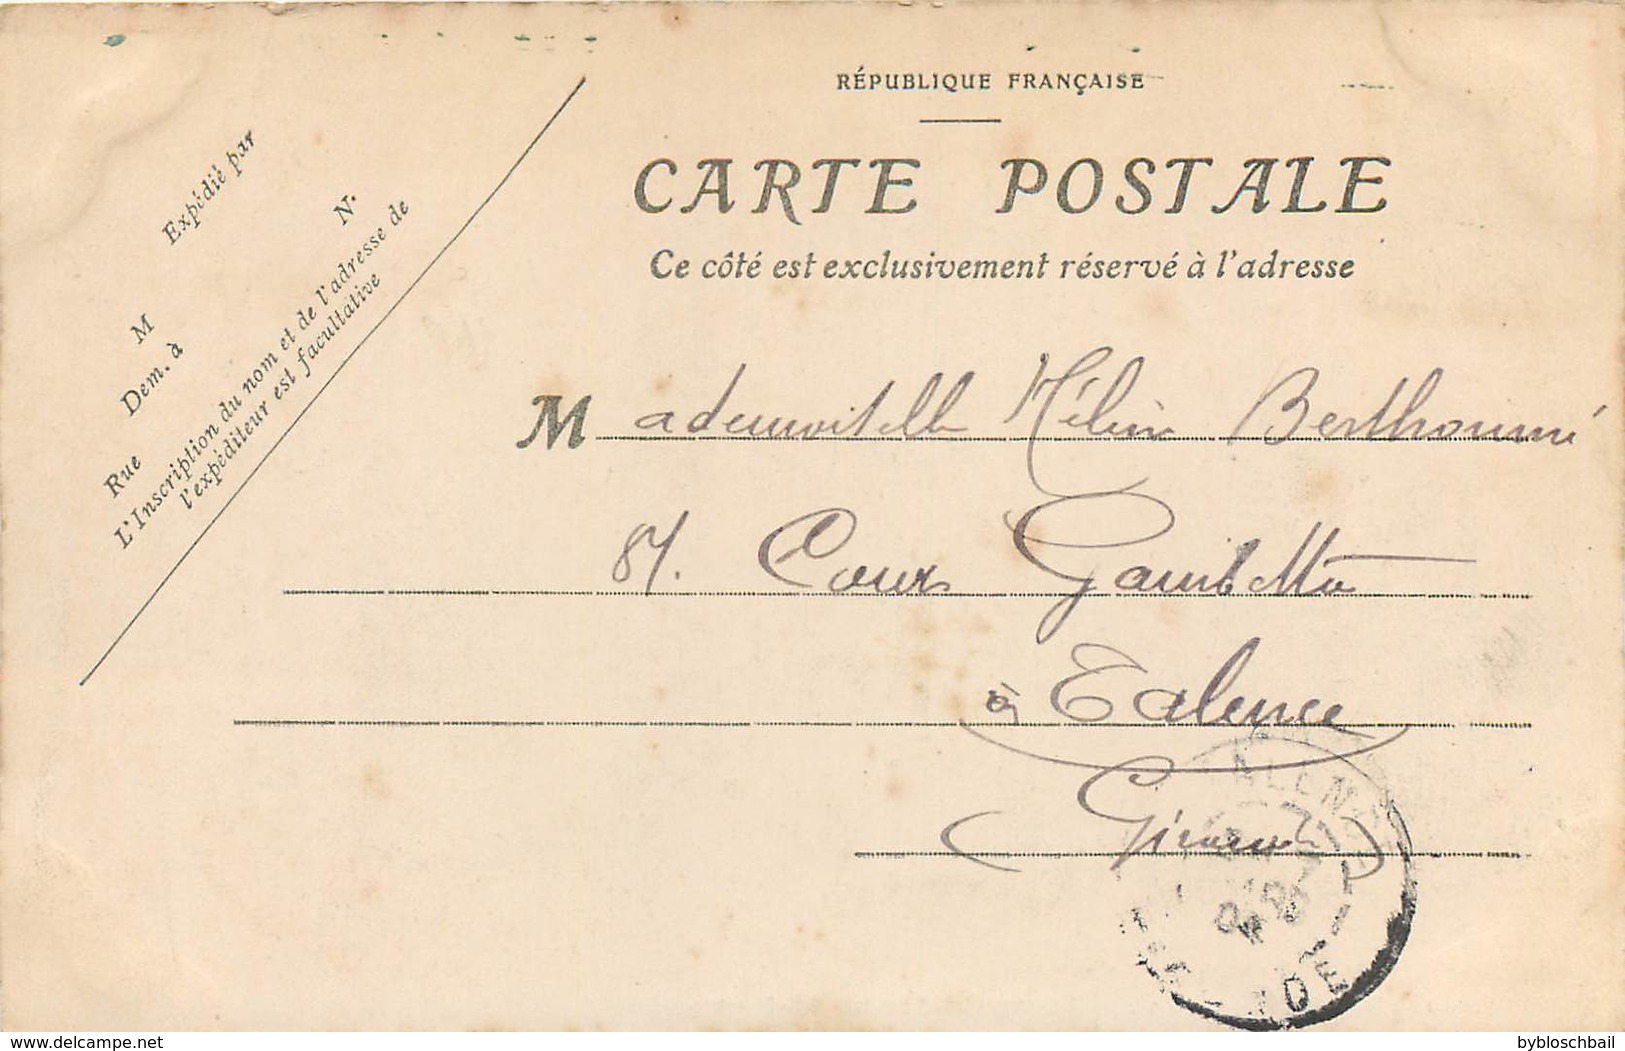 RÉPUBLIQUE FRANÇAISE
CARTE POSTALE
Ce côté est exclusivement réservé à l'adresse
Expédié par
M
N.
Dem. à
Rue
L'Inscription du nom et de l'adresse de
l'expéditeur est facultative
Mademoiselle Hélène Berthoumé
87. Cours Gambetta
à Talence
(Gironde)
www.delcampe.net
bybloschbail